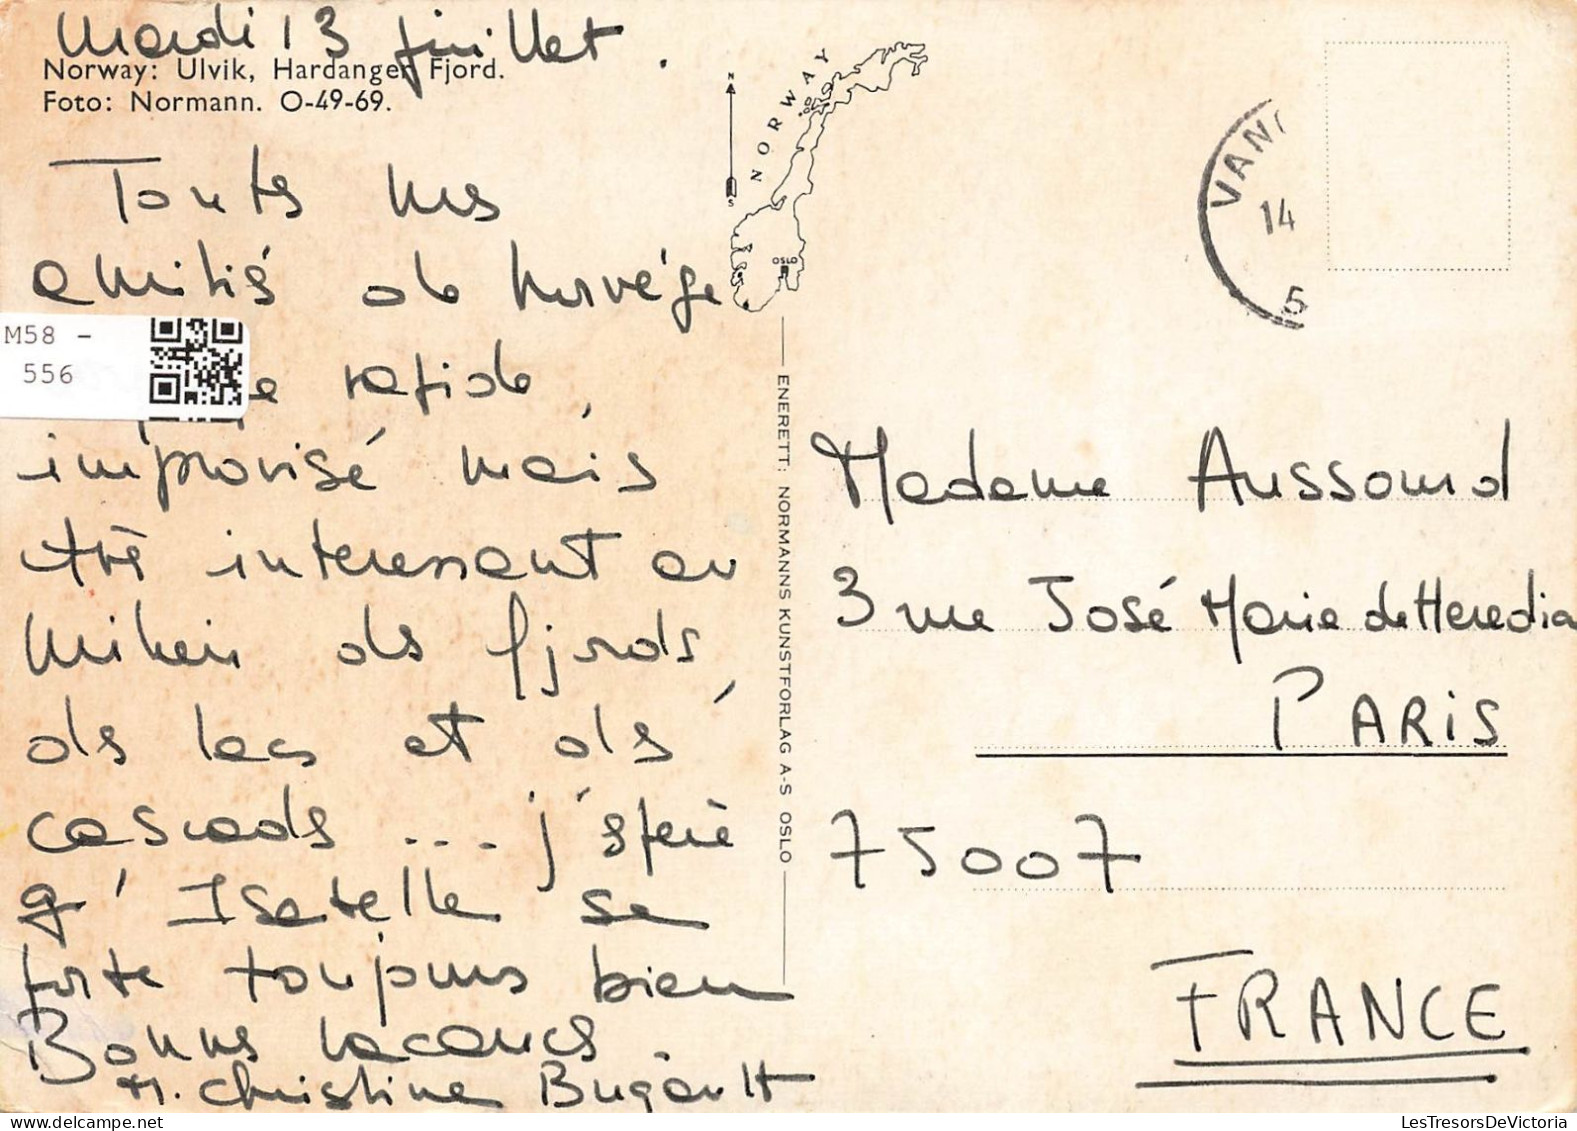 Mardi 13 juillet.
Norway: Ulvik, Hardanger Fjord.
Foto: Normann. O-49-69.
Toutes mes
amitiés de Norvége.
rapide,
improvisé mais
très interessant au
milieu des fjords,
des lacs et des
cascades ... j'espère
q' Isabelle se
porte toujours bien
Bonnes vacances.
M. Christine Bugault
M58 -
556
N
S
NORWAY
OSLO
ENERETT: NORMANNS KUNSTFORLAG A-S OSLO
14
5
Madame Aussourd
3 rue José Marie de Heredia
PARIS
75007
FRANCE
LesTresorsDeVictoria